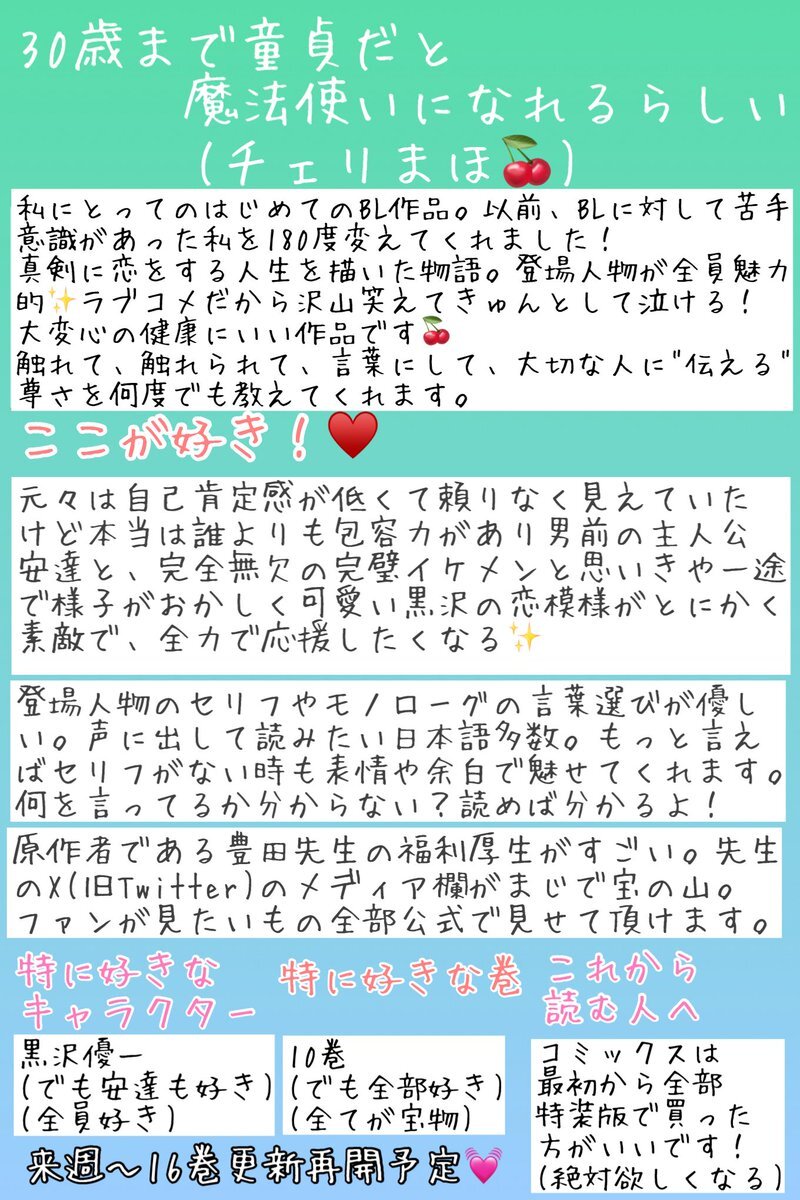 30歳まで童貞だと
魔法使いになれるらしい
(チェリまほ🍒)
私にとってのはじめてのBL作品。以前、BLに対して苦手
意識があった私を180度変えてくれました!
真剣に恋をする人生を描いた物語。登場人物が全員魅力
的✨ラブコメだから沢山笑えてきゅんとして泣ける!
大変心の健康にいい作品です🍒
触れて、触れられて、言葉にして、大切な人に"伝える"
尊さを何度でも教えてくれます。
ここが好き!♥️
元々は自己肯定感が低くて頼りなく見えていた
けど本当は誰よりも包容力があり男前の主人公
安達と、完全無欠の完璧イケメンと思いきや一途
で様子がおかしく可愛い黒沢の恋模様がとにかく
素敵で、全力で応援したくなる✨
登場人物のセリフやモノローグの言葉選びが優し
い。声に出して読みたい日本語多数。もっと言え
ばセリフがない時も表情や余白で魅せてくれます。
何を言ってるか分からない?読めば分かるよ!
原作者である豊田先生の福利厚生がすごい。先生
のX(旧Twitter)のメディア欄がまじで宝の山。
ファンが見たいもの全部公式で見せて頂けます。
特に好きな
キャラクター
黒沢優一
(でも安達も好き)
(全員好き)
特に好きな巻
10巻
(でも全部好き)
(全てが宝物)
これから
読む人へ
コミックスは
最初から全部
特装版で買った
方がいいです!
(絶対欲しくなる)
来週〜16巻更新再開予定💓